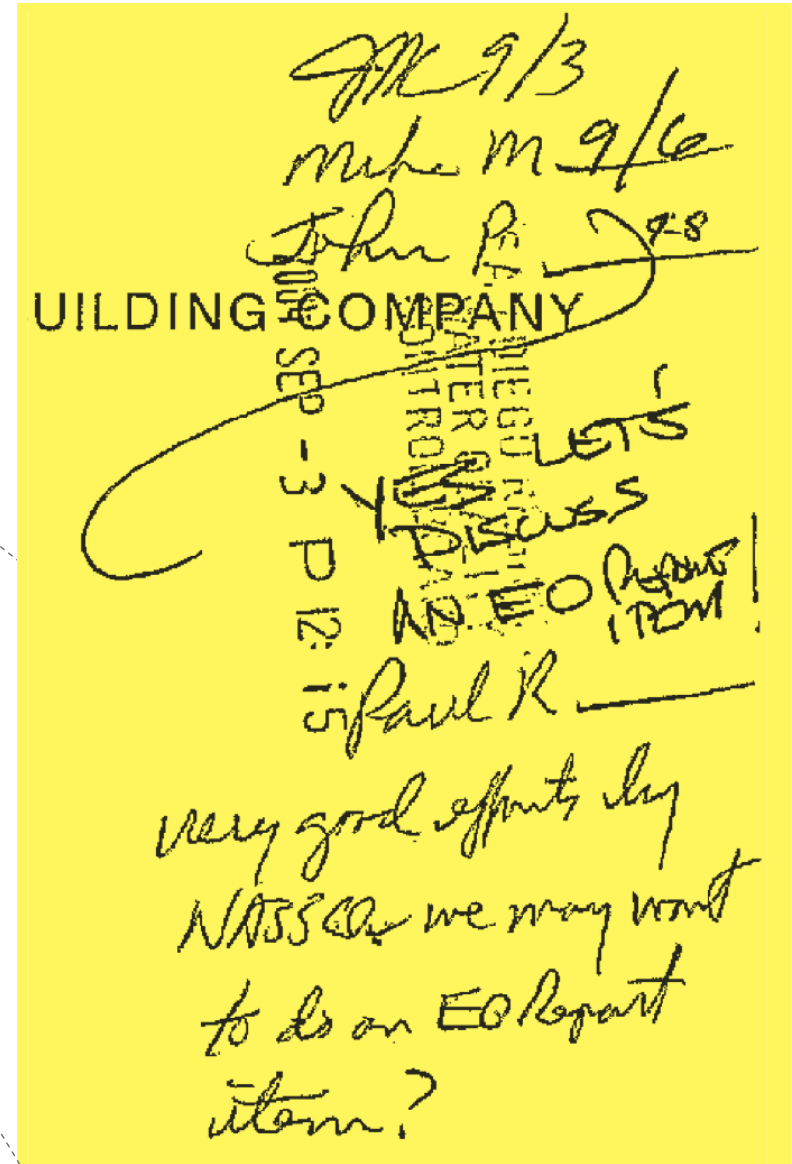 JR 9/3
Mike M 9/6
John P. 9-8
UILDING COMPANY
SEP -3 P 12:15
DIEGO
WATER
CONTROL
YES LET'S
DISCUSS
AN EO REPORT
ITEM
Paul R
very good efforts by
NASSCO. we may want
to do an EO Report
item?